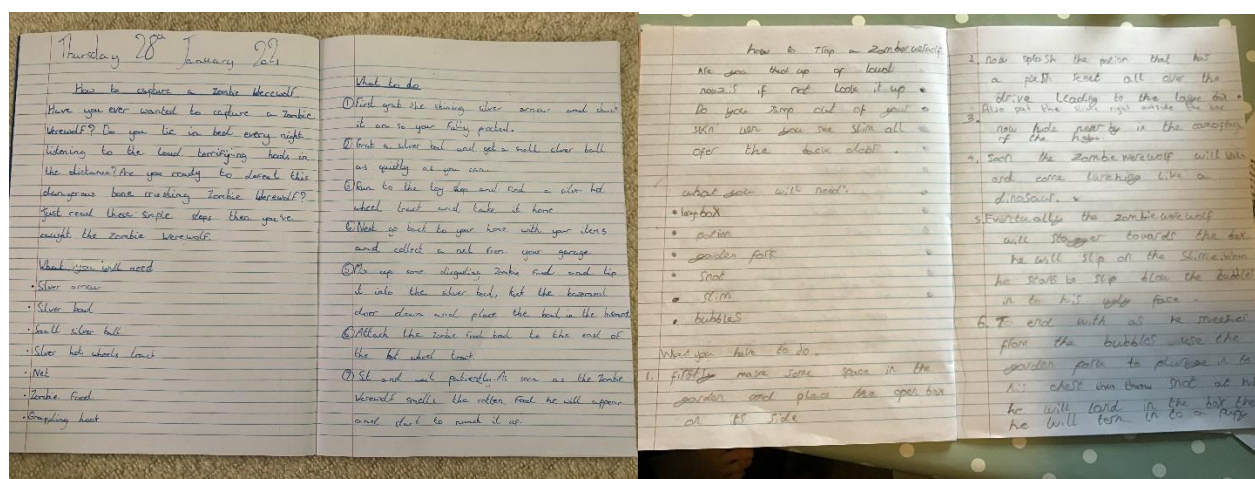 Thursday 28th January 22,
How to capture a Zombie Werewolf
Have you ever wanted to capture a Zombie
Werewolf? Do you lie in bed every night
listening to the loud terrifying howls in
the distance? Are you ready to defeat this
dangerous bone crushing Zombie Werewolf?
Just read these simple steps then you've
caught the Zombie Werewolf.
What you will need
• Silver arrow
• Silver bowl
• Small silver ball
• Silver hot wheels track
• Net
• Zombie Food
• Grappling hook
What to do
① First grab the shining silver arrow and
it in so your pocket.
② Grab a silver bowl and get a small silver ball
as quickly as you can
③ Run to the toy shop and find a silver hot
wheel track and take it home
④ Next go back to your home with your items
and collect a net from your garage
⑤ Mix up some disgusting Zombie Food and tip
it into the silver bowl, the basement
door down and place the bowl in the basment
⑥ Attach the Zombie Food bowl to the end of
the hot wheel track.
⑦ Sit and wait patiently. As soon as the Zombie
Werewolf smells the rotten food he will appear
and start to munch it up.
how to Trap a Zomberwerewolf
Are you up of loud
if not Look it up
Do you Jump out of your
skin wen you see slim all
ofer the back door.
what you will need:
• box
• potion
• garden fork
• Snot
• Slim
• bubbles
What you have to do.
1. firstly make some space in the
garden and place the open box
on its side
2. now splash the potion that has
a all over the
drive leading to the large box.
3. Also put the slime right outside the box
now hide near by in the
of the
4. Soon the zombie werewolf will
and come like a
dinosaur.
5. Eventually the zombie werewolf
will stagger towards the box
he will slip on the slime. when
he starts to slip blow the bubbles
in to his ugly face.
6. To end with as he
from the bubbles use the
garden fork to in to
his chest then throw snot at him
he will land in the box the
he will turn in to a